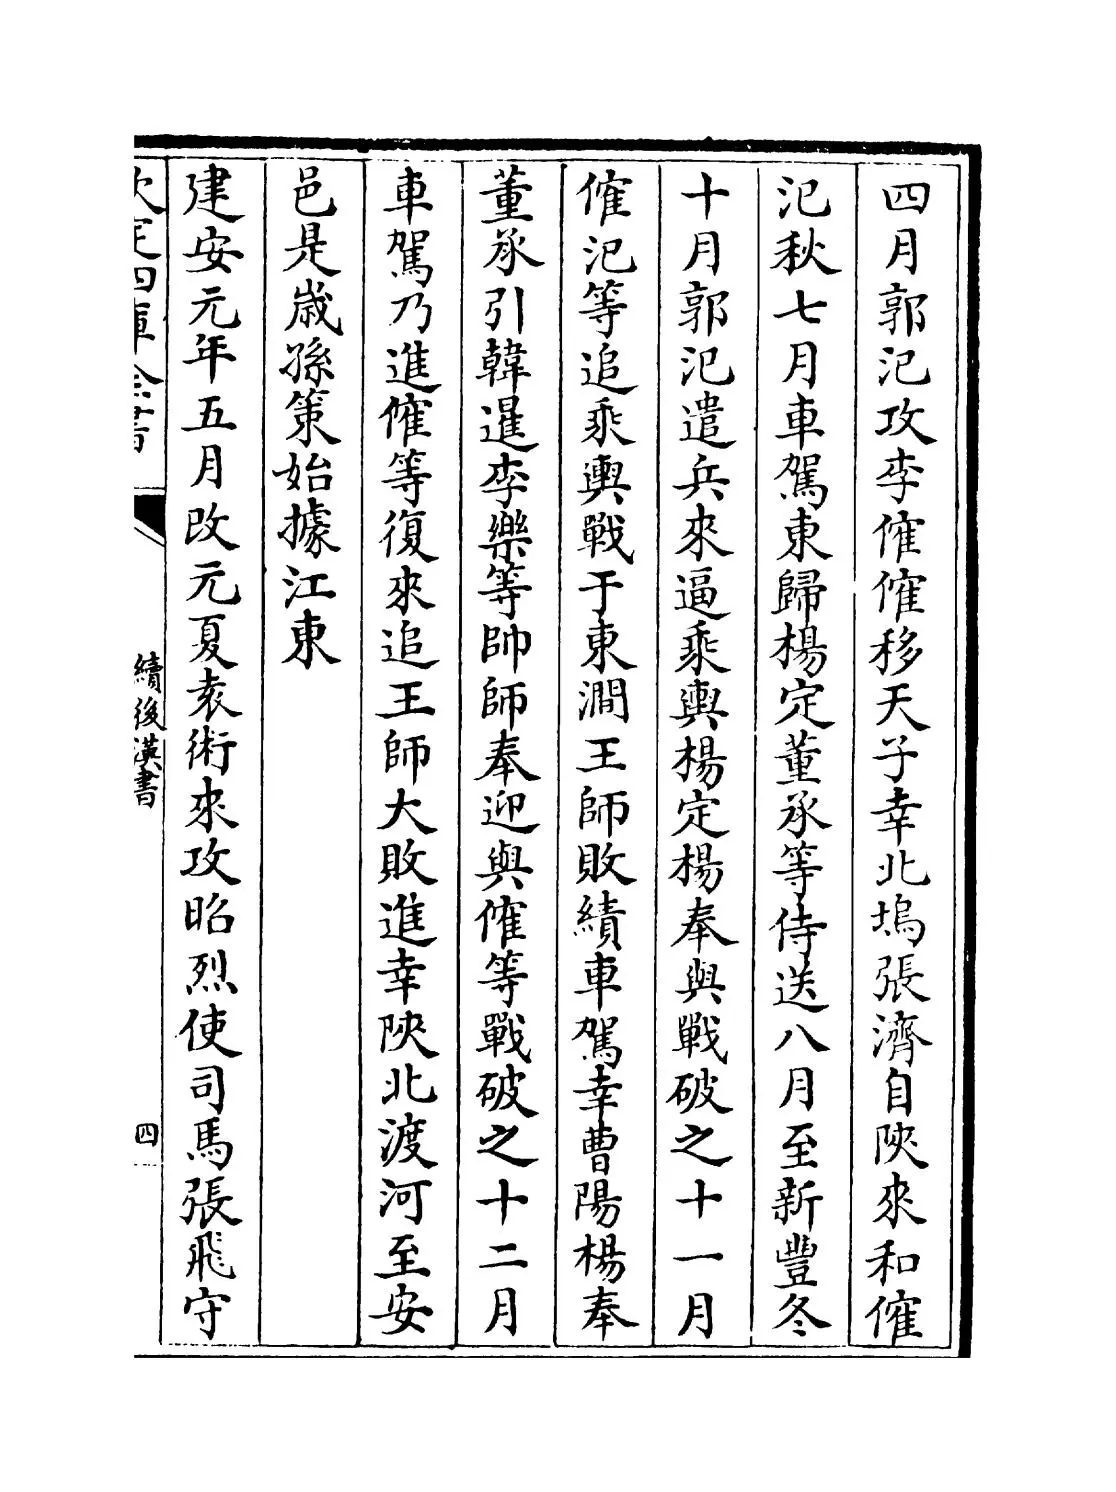 四月郭汜攻李傕傕移天子幸北塢張濟自陜來和傕
汜秋七月車駕東歸楊定董承等侍送八月至新豐冬
十月郭汜遣兵來逼乘輿楊定楊奉與戰破之十一月
傕汜等追乘輿戰于東澗王師敗績車駕幸曹陽楊奉
董承引韓暹李樂等帥師奉迎與傕等戰破之十二月
車駕乃進傕等復來追王師大敗進幸陜北渡河至安
邑是歲孫策始據江東
建安元年五月改元夏袁術來攻昭烈使司馬張飛守
欽定四庫全書
續後漢書
四